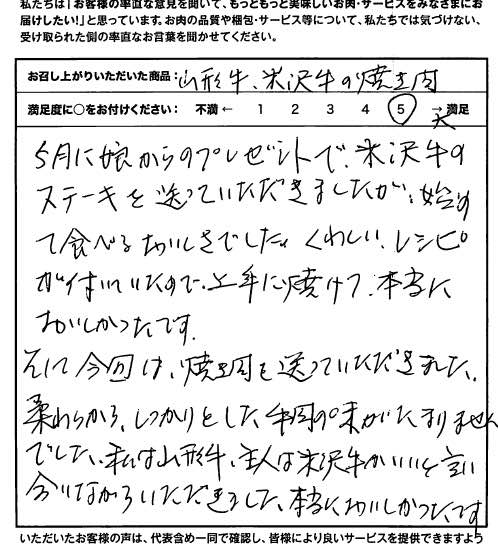 私たちは「お客様の率直な意見を聞いて、もっともっと美味しいお肉・サービスをみなさまにお
届けしたい!」と思っています。お肉の品質や梱包・サービス等について、私たちでは気づけない、
受け取られた側の率直なお言葉を聞かせてください。
お召し上がりいただいた商品：山形牛、米沢牛の焼き肉
満足度に○をお付けください： 不満 ← 1 2 3 4 5 → 満足
大
5月に娘からのプレゼントで、米沢牛の
ステーキを送っていただきましたが、始め
て食べるおいしさでした。くわしい、レシピ
が付いていたので、上手に焼けて、本当に
おいしかったです。
そして今回は、焼き肉を送っていただきました。
柔わらかく、しっかりとした牛肉の味がたまりません
でした。私は山形牛、主人は米沢牛がいいと言い
合いながらいただきました。本当においしかったです
いただいたお客様の声は、代表含め一同で確認し、皆様により良いサービスを提供できますよう